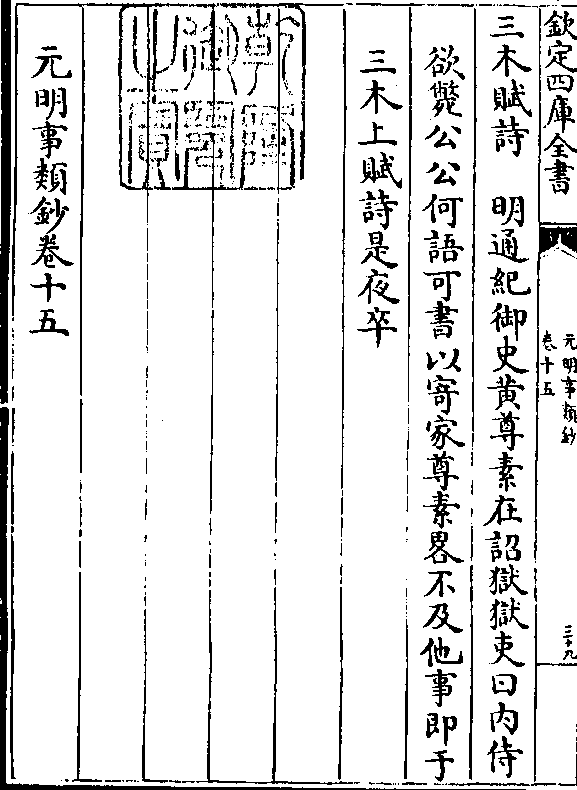 欽定四庫全書
元明事類鈔
卷十五
三十九
三木賦詩　明通紀御史黄尊素在詔獄獄吏曰内侍
欲斃公公何語可書以寄家尊素畧不及他事即于
三木上賦詩是夜卒
乾隆
御覽
之寶
元明事類鈔卷十五